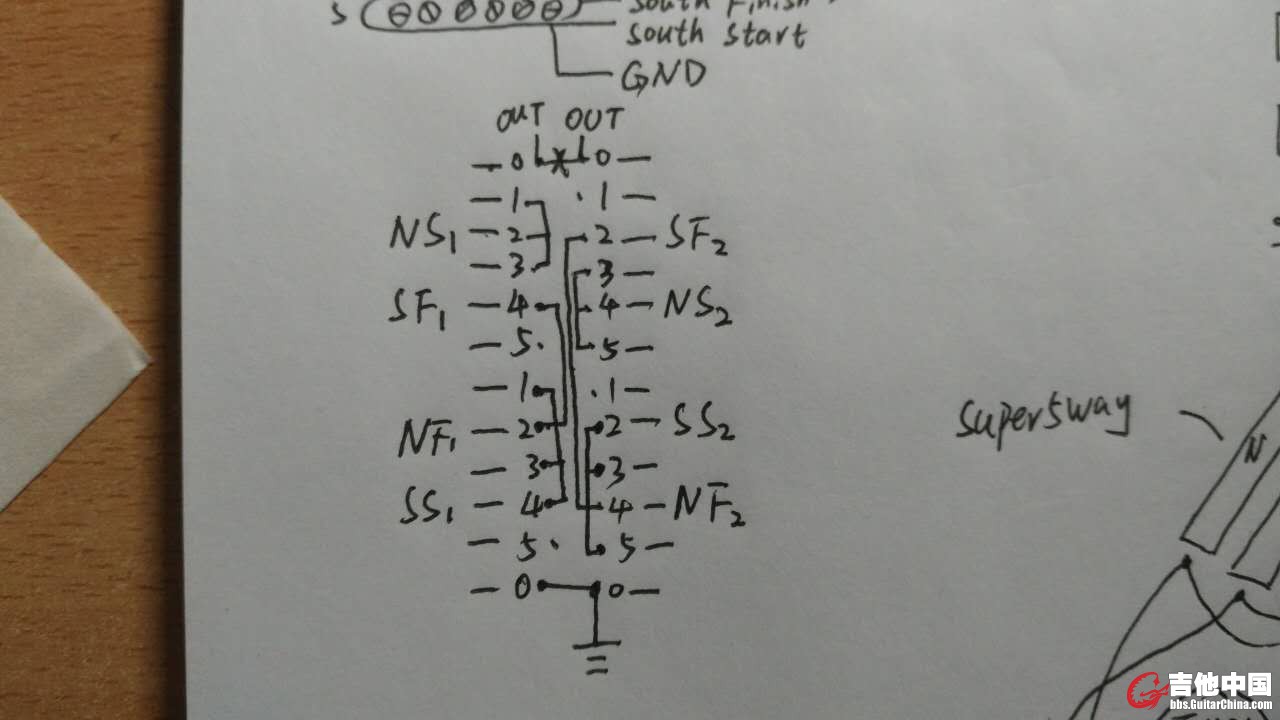 S South Finish
South Start
GND
OUT OUT
0 0
1 1
NS1 2 2 SF2
3 3
SF1 4 4 NS2
5 5
1 1
NF1 2 2 SS2
3 3
SS1 4 4 NF2
5 5
0 0
Super5way
N
吉他中国
bbs.GuitarChina.com